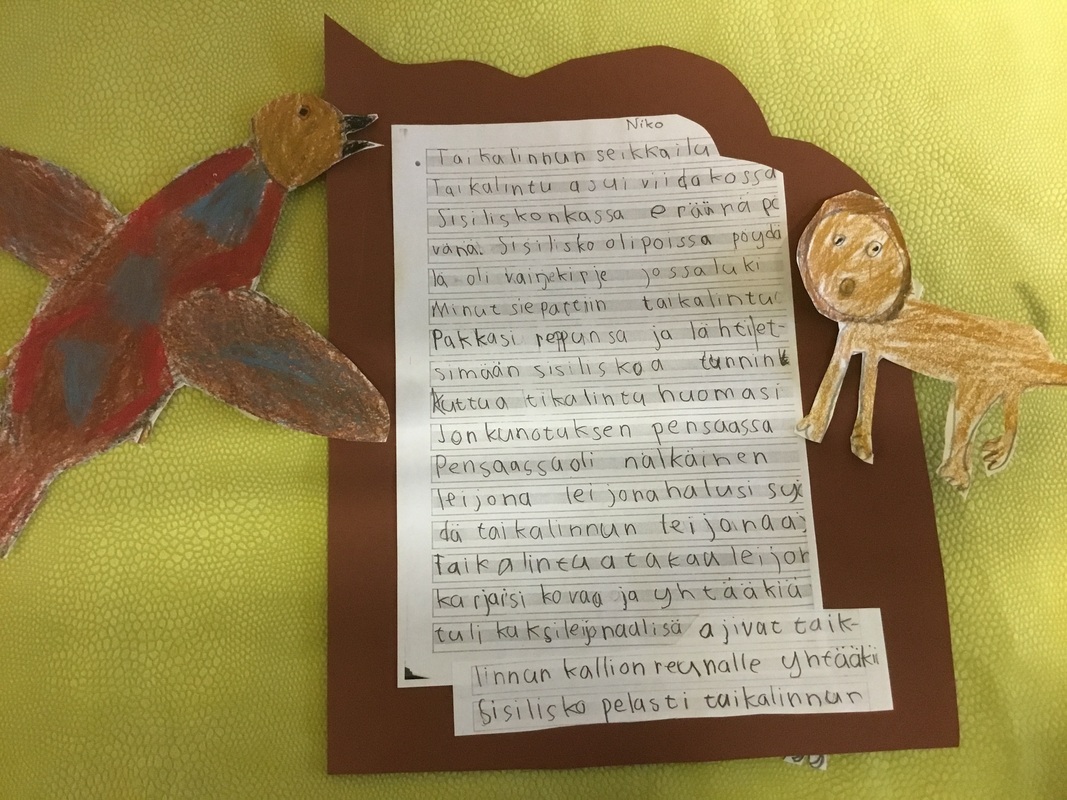 Niko
Taikalinnun seikkailu
Taikalintu asui viidakossa
Sisiliskonkassa eräänä pä
vänä. Sisilisko oli poissa pöydä
lä oli vainekirje jossa luki
Minut siepattiin taikalintu
Pakkasi reppunsa ja lähti et-
simään sisiliskoa tunnin k
kuttua tikalintu huomasi
Jonkunotuksen pensaassa
Pensaassa oli nälkäinen
leijona leijonahalusi syö
dä taikalinnun leijonaa
Taikalintu atakaa leijon
karjaisi kovaa ja yhtääkiä
tuli kaksileijonaalisä ajivat taik-
linnun kallion reunalle yhtääki
Sisilisko pelasti taikalinnun